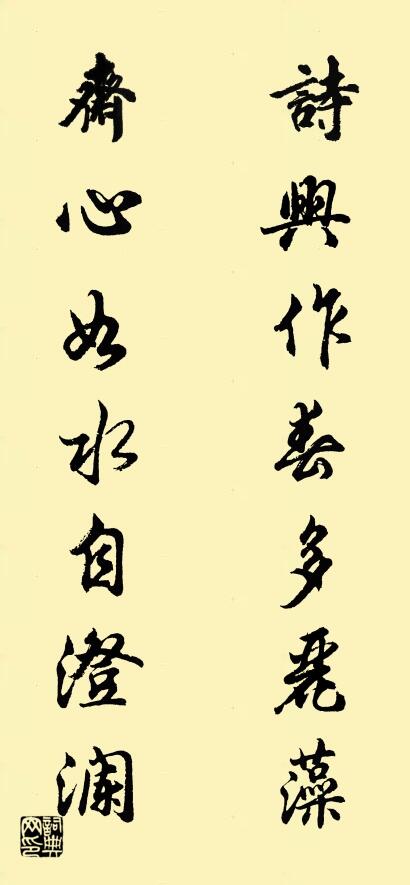 詩興作春多麗藻
齋心如水自澄瀾
詞典
网印